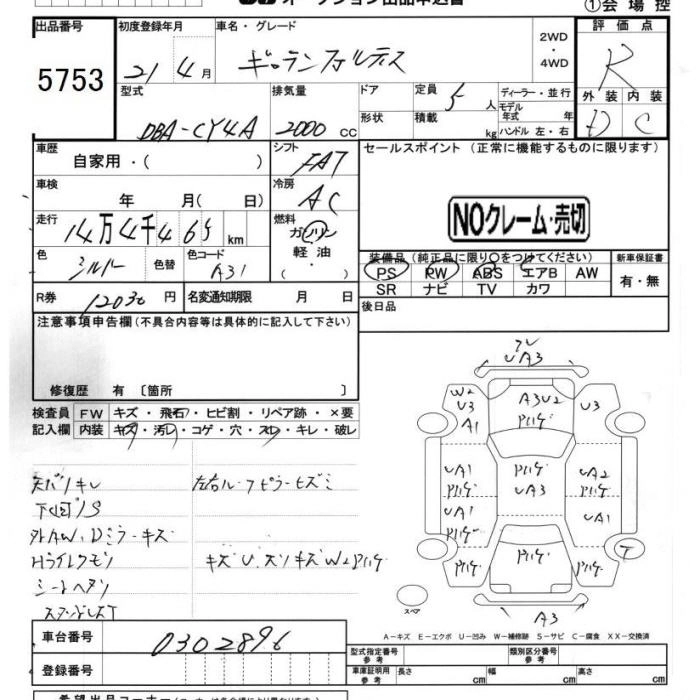 オークション出品申込書
①会場控
出品番号 初度登録年月 車名・グレード 2WD・4WD 評価点
5753
21年4月 ギャランフォルティス R
型式 排気量 ドア 定員 ディーラー・並行 外装 内装
DBA-CY4A 2000 cc 5人 モデル年式 年式 D C
形状 積載 kg ハンドル 左・右
車歴 シフト セールスポイント (正常に機能するものに限ります)
自家用・( ) FAT
車検 冷房
年 月( 日) AC
NOクレーム・売切
走行 燃料
14万4千465km ガソリン 軽油・
色 色替 色コード 装備品(純正品に限り○をつけてください) 新車保証書
シルバー A31 PS PW ABS エアB AW 有・無
SR ナビ TV カワ
R券 12030円 名変通知期限 月 日 後日品
注意事項申告欄(不具合内容等は具体的に記入して下さい)
修復歴 有〔箇所 〕
検査員 FW キズ・飛石・ヒビ割・リペア跡・×要
記入欄 内装 キズ・汚レ・コゲ・穴・スレ・キレ・破レ
天バリキレ 左右ルーフピラーヒズミ
下回りS
外AW、Dミラーキズ
Hライトクモリ キズU、スリキズW2Pハゲ
シートヘタリ
フレ
UA3
W2
U3
A1
A3U2
Pハゲ
U3
UA1
Pハゲ
UA1
Pハゲ
Pハゲ
UA3
UA2
Pハゲ
UA1
Pハゲ
Pハゲ
Pハゲ
T
A3
スペア
A-キズ E-エクボ U-凹み W-補修跡 S-サビ C-腐食 XX-交換済
車台番号 0302896
型式指定番号 参考 類別区分番号 参考
登録番号
車庫証明用 参考 長さ cm 幅 cm 高さ cm